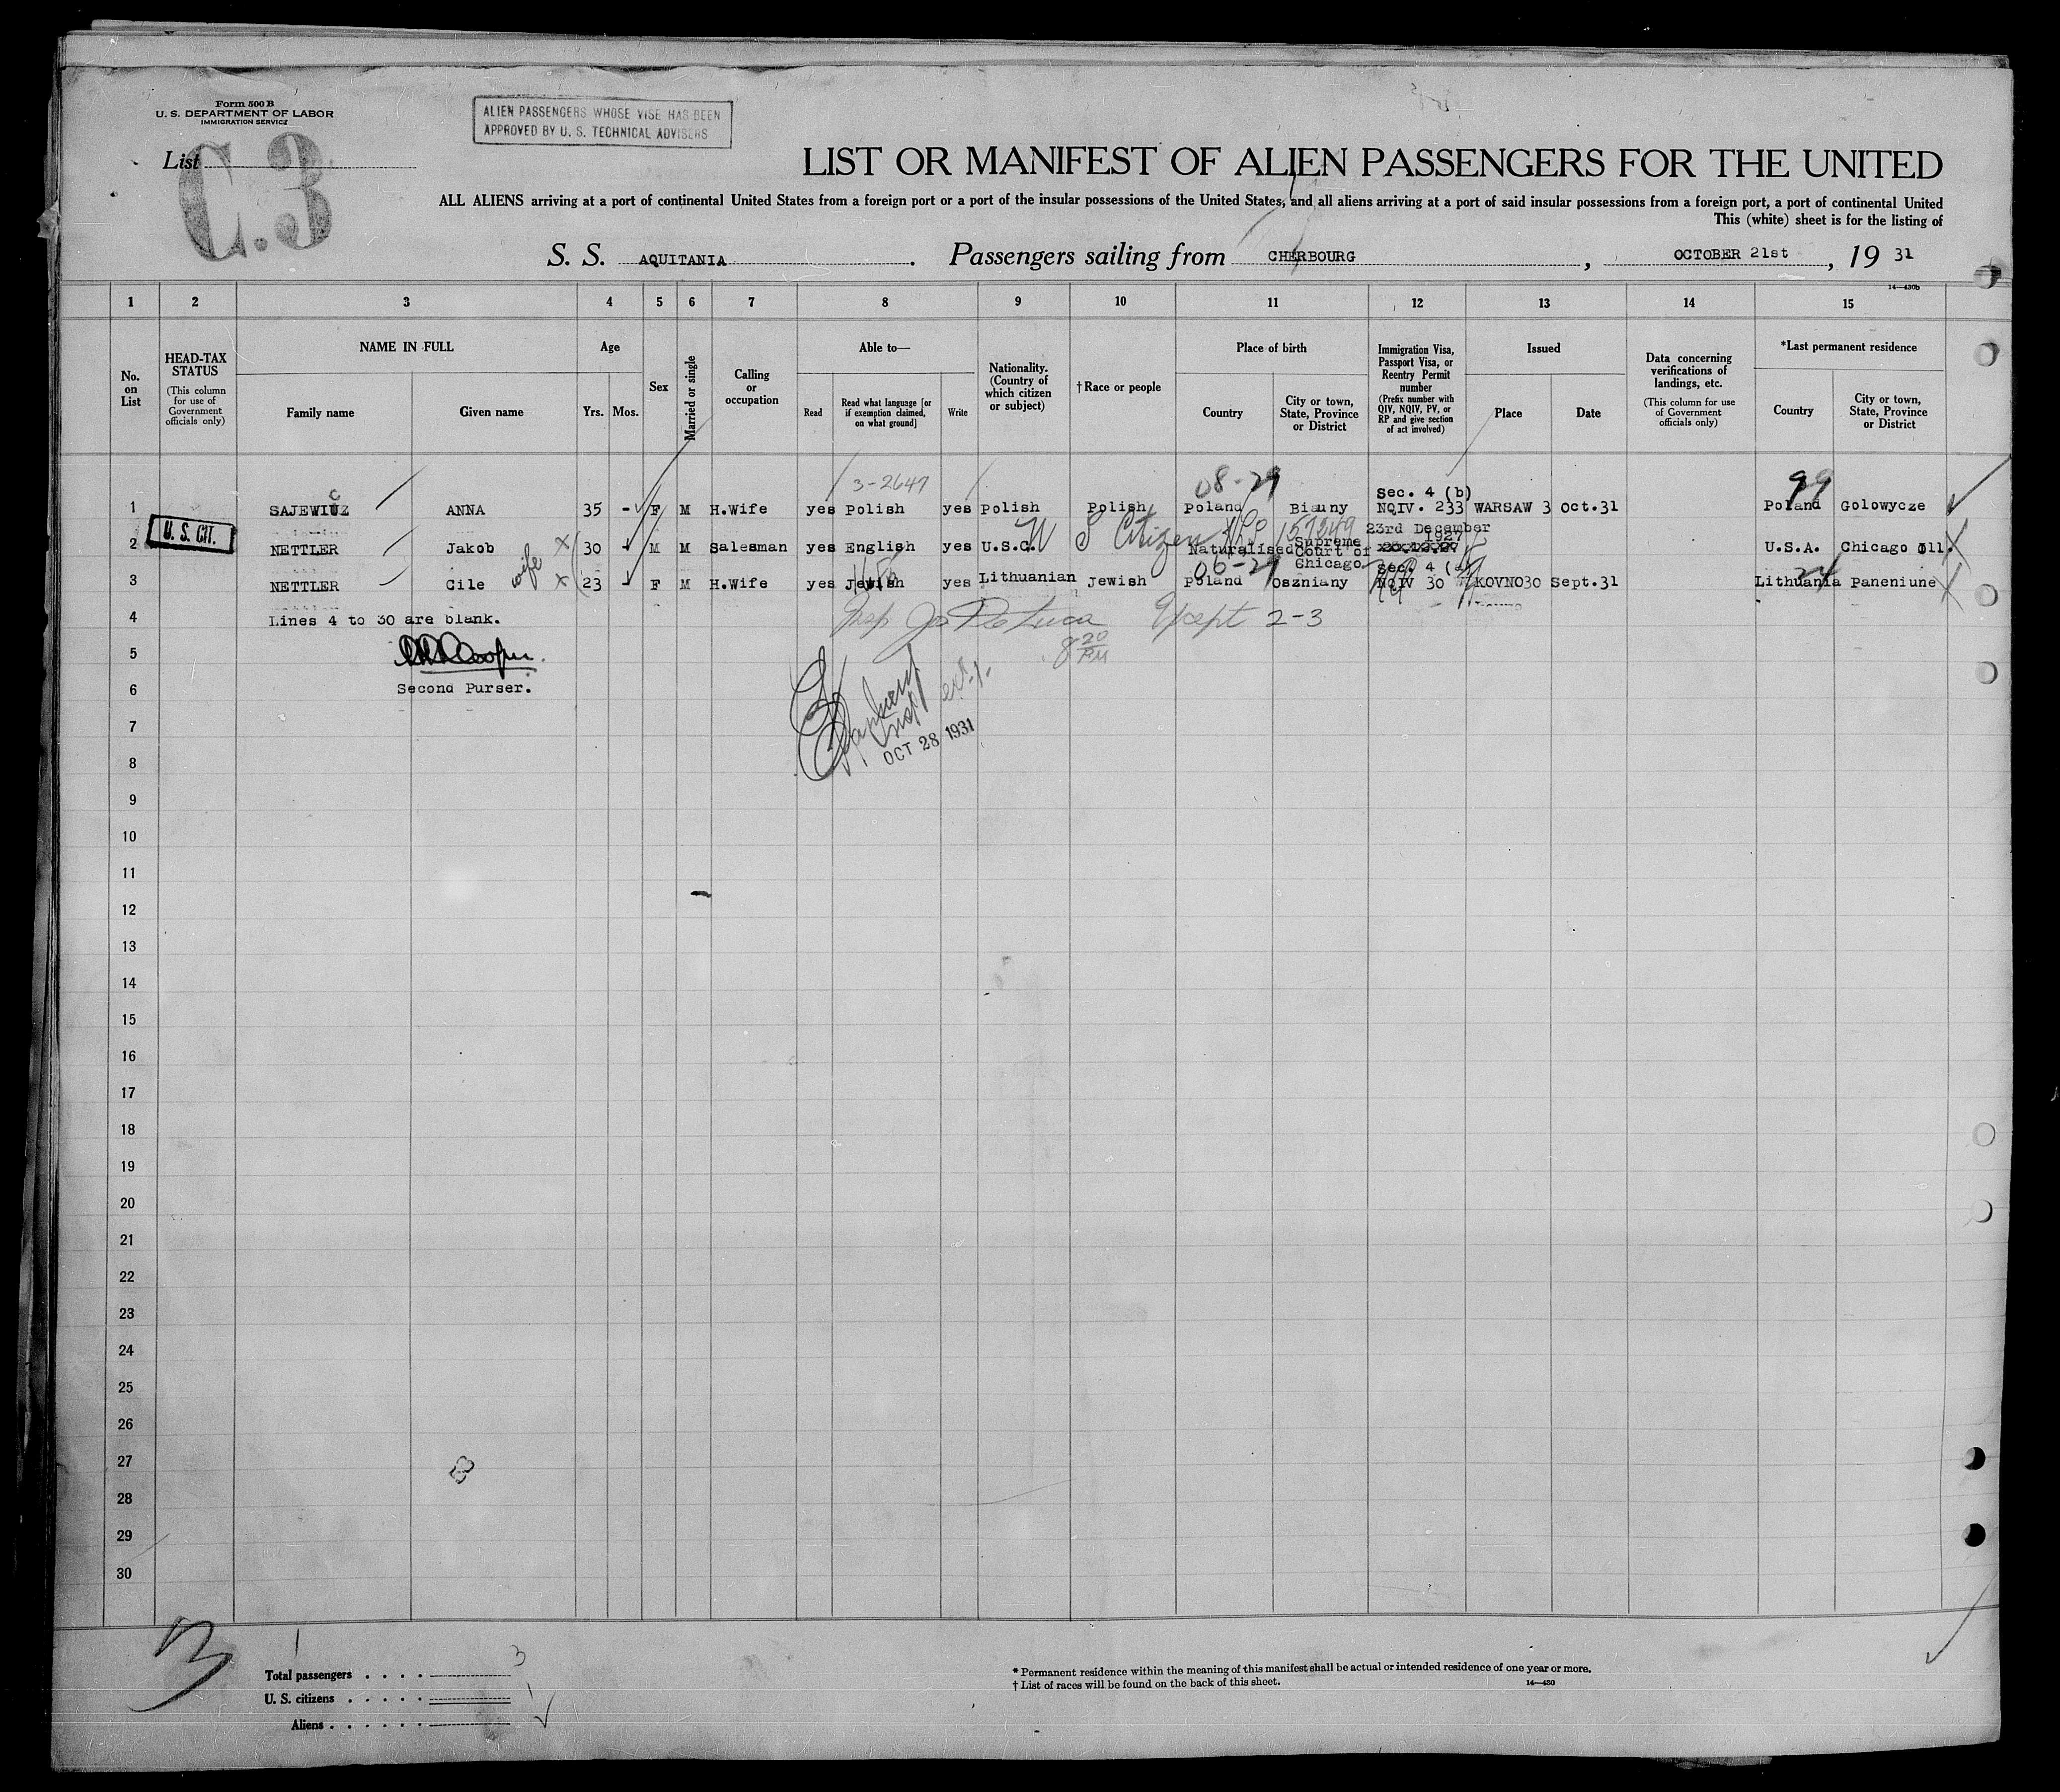 Form 500 B
U. S. DEPARTMENT OF LABOR
IMMIGRATION SERVICE
ALIEN PASSENGERS WHOSE VISE HAS BEEN
APPROVED BY U. S. TECHNICAL ADVISERS
List
C.3
LIST OR MANIFEST OF ALIEN PASSENGERS FOR THE UNITED
ALL ALIENS arriving at a port of continental United States from a foreign port or a port of the insular possessions of the United States, and all aliens arriving at a port of said insular possessions from a foreign port, a port of continental United
This (white) sheet is for the listing of
S. S. AQUITANIA. Passengers sailing from CHERBOURG, OCTOBER 21st, 19 31
14—430b
1 2 3 4 5 6 7 8 9 10 11 12 13 14 15
No. on List
HEAD-TAX STATUS (This column for use of Government officials only)
NAME IN FULL
Family name
Given name
Age
Yrs. Mos.
Sex
Married or single
Calling or occupation
Able to—
Read
Read what language [or if exemption claimed, on what ground]
Write
Nationality. (Country of which citizen or subject)
†Race or people
Place of birth
Country
City or town, State, Province or District
Immigration Visa, Passport Visa, or Reentry Permit number (Prefix number with QIV, NQIV, PV, or RP and give section of act involved)
Issued
Place
Date
Data concerning verifications of landings, etc. (This column for use of Government officials only)
*Last permanent residence
Country
City or town, State, Province or District
3-2647 08-29 99
Sec. 4 (b)
1 SAJEWICZ ANNA 35 - F M H.Wife yes Polish yes Polish Polish Poland Biauny NQIV. 233 WARSAW 3 Oct.31 Poland Golowycze
U. S. CIT.
U S Citizen No 157249
23rd December 1927
2 NETTLER Jakob 30 M M Salesman yes English yes U.S.C. Naturalised Supreme Court of Chicago U.S.A. Chicago Ill.
wife
06-29 Sec. 4 (a) 24
3 NETTLER Cile 23 F M H.Wife yes Jewish yes Lithuanian Jewish Poland Oszniany NQIV 30 KOVNO 30 Sept.31 Lithuania Paneniune
4 Lines 4 to 30 are blank.
Insp Jos De Luca Except 2-3
8 20 PM
5
6 Second Purser.
7
OCT 28 1931
8
9
10
11
12
13
14
15
16
17
18
19
20
21
22
23
24
25
26
27
28
29
30
3
1
Total passengers . . . . 3
U. S. citizens . . . . . 1
Aliens . . . . . .
* Permanent residence within the meaning of this manifest shall be actual or intended residence of one year or more.
† List of races will be found on the back of this sheet.
14—430